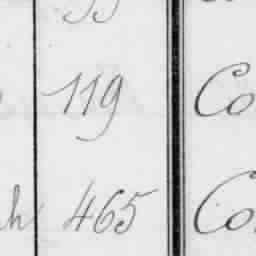 119 Co
h 465 Co